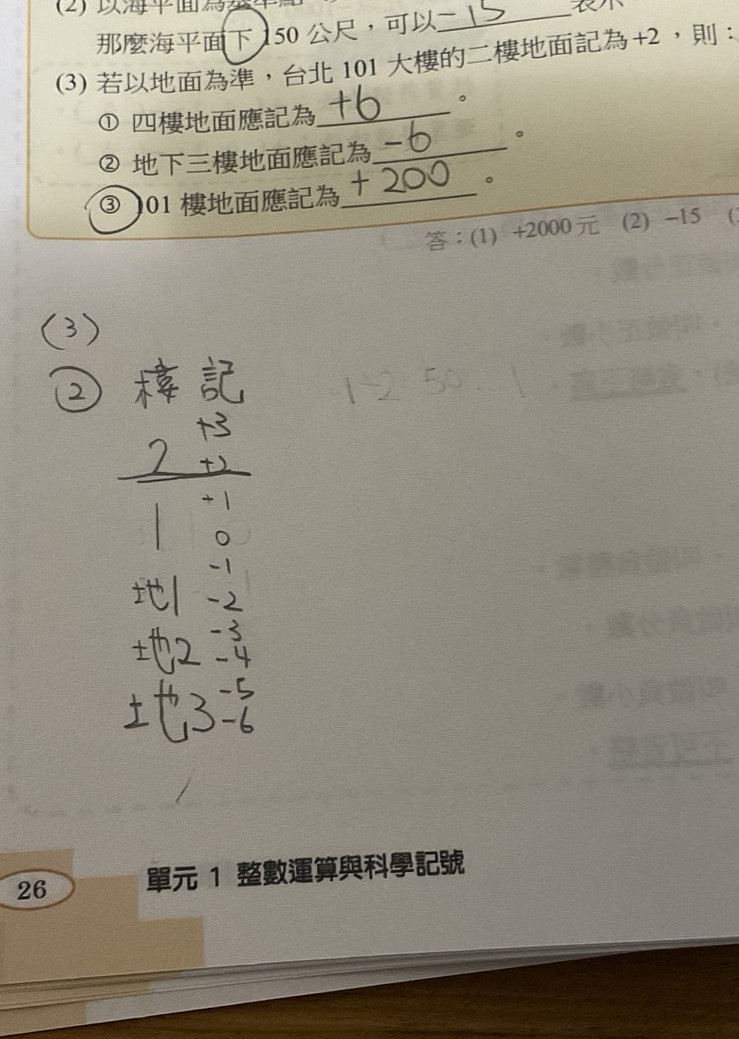 (2) 以海平面為基準點
那麼海平面下150公尺，可以 -15 表示
(3) 若以地面為準，台北101大樓的二樓地面記為+2，則：
① 四樓地面應記為 +6 。
② 地下三樓地面應記為 -6 。
③ 101樓地面應記為 +200 。
答：(1) +2000元 (2) -15
(3)
② 樓 記
+3
2 +2
+1
1 0
-1
地1 -2
-3
地2 -4
-5
地3 -6
26 單元 1 整數運算與科學記號